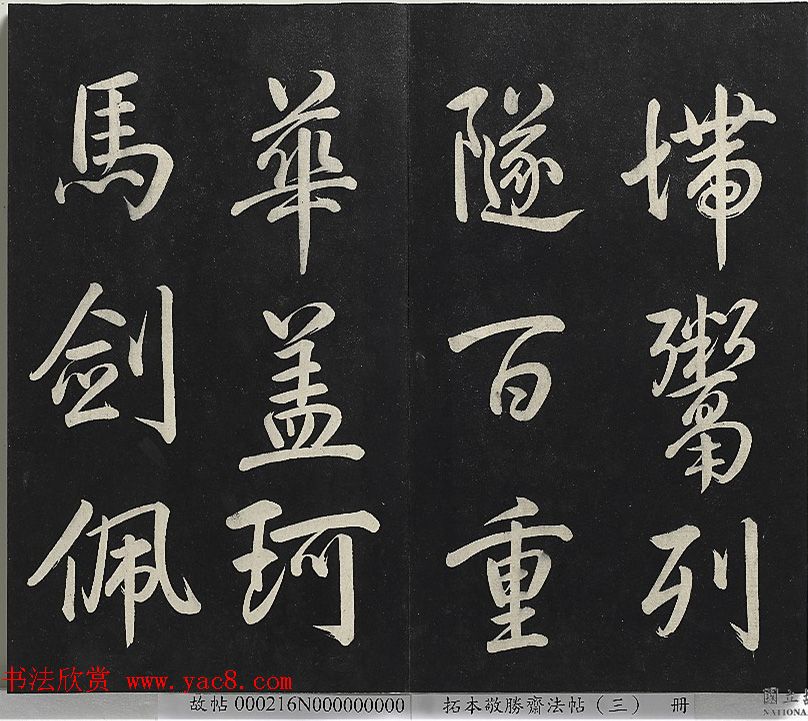 墆鬻列
隧百重
華盖珂
馬剑佩
书法欣赏 www.yac8.com
故帖 000216N000000000
拓本敬勝齋法帖（三） 册
國立
NATIONA